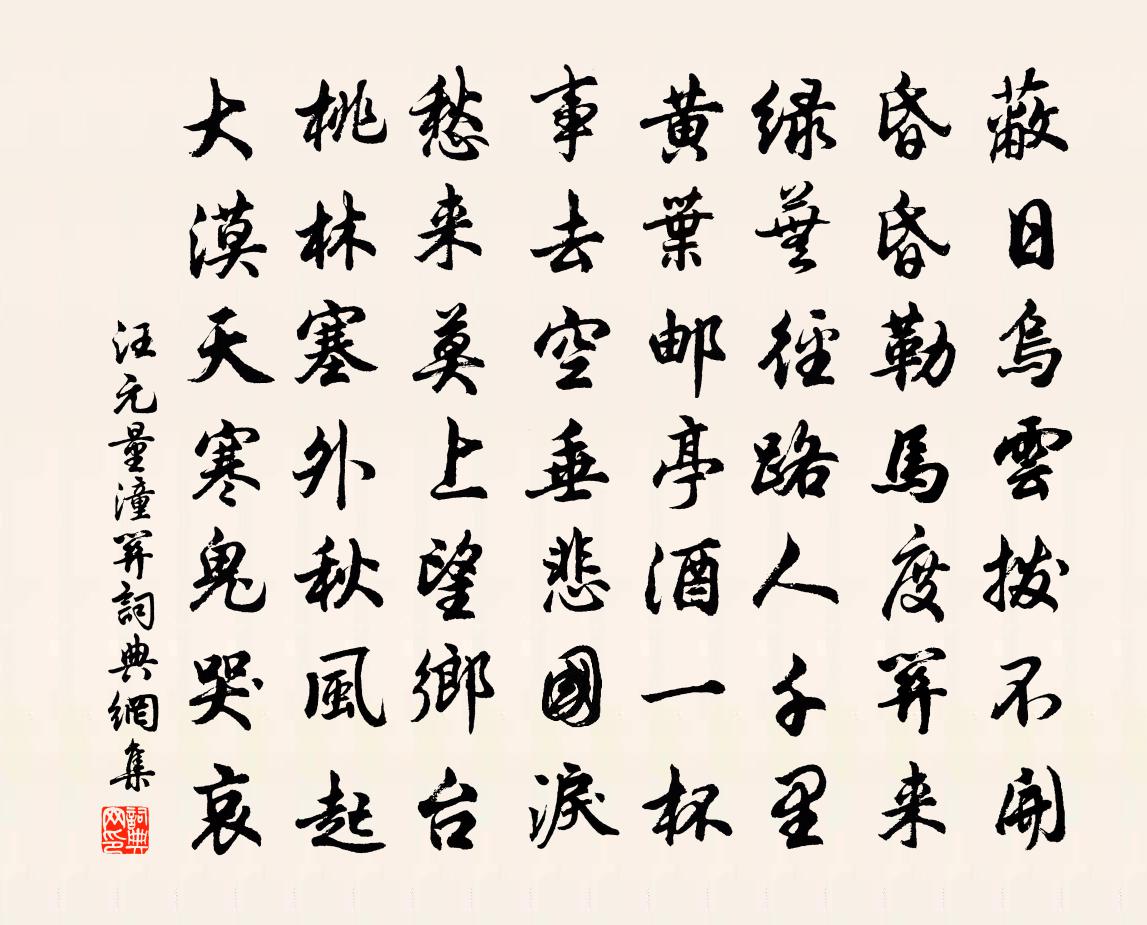 蔽日烏雲撥不開
昏昏勒馬度關来
綠蕪徑路人千里
黃葉邮亭酒一杯
事去空垂悲國淚
愁来莫上望鄉台
桃林塞外秋風起
大漠天寒鬼哭哀
汪元量潼關詞典網集
詞典网印